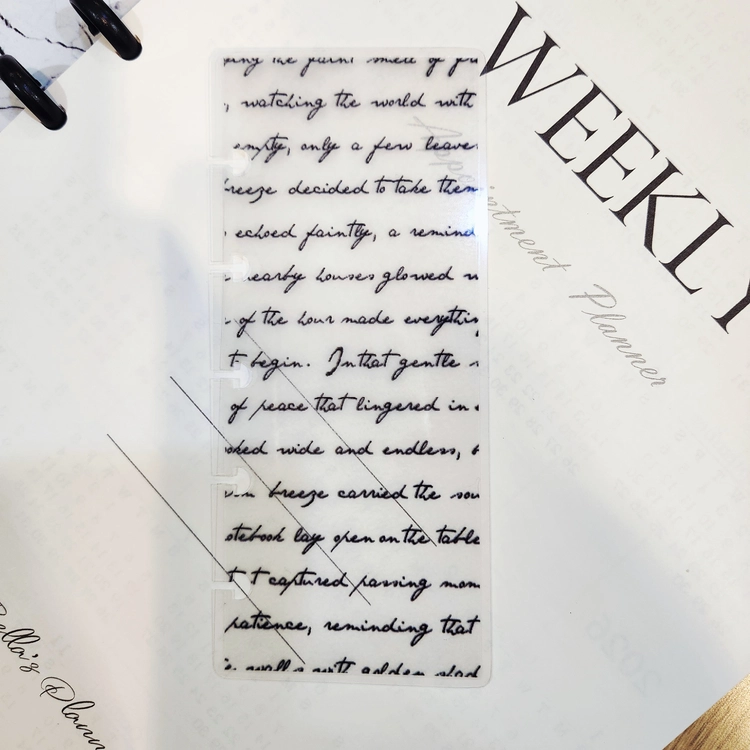 the faint smell of
, watching the world with
empty, only a few leaves
breeze decided to take them
echoed faintly, a remind
nearby houses glowed
of the hour made everythin
t begin. In that gentle
of peace that lingered in
oked wide and endless,
breeze carried the sou
otebook lay open on the table
t captured passing mom
patience, reminding that
walls with golden shad
WEEKLY
Appointment Planner
Bella's Plann
2026